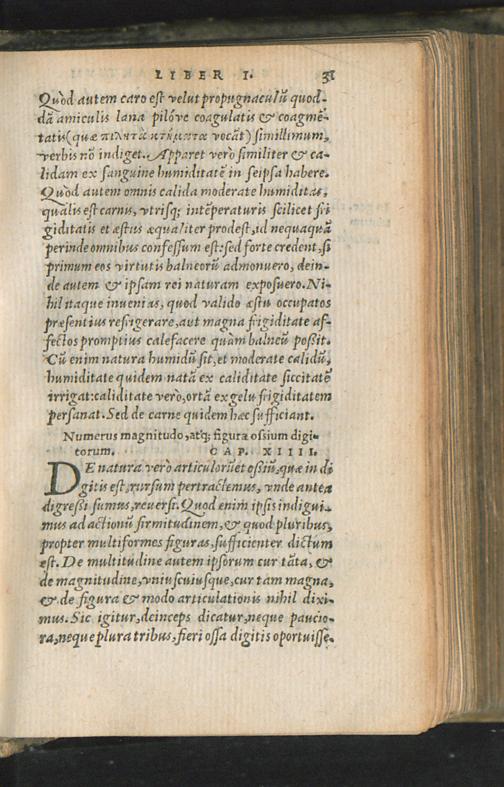 LIBER I. 31
Quòd autem caro est velut propugnaculũ quod-
dã amiculis lana pilóve coagulatis & coagmẽ-
tatis (quæ πιλητὰ κτήματα vocãt) simillimum,
verbis nõ indiget. Apparet verò similiter & ca-
lidam ex sanguine humiditatẽ in seipsa habere.
Quòd autem omnis calida moderate humiditas,
qualis est carnis, vtrisq; intẽperaturis scilicet fri
giditatis et æstus æqualiter prodest, id nequaquã
perinde omnibus confessum est: sed forte credent, si
primum eos virtutis balneorũ admonuero, dein-
de autem & ipsam rei naturam exposuero. Ni-
hil itaque inuenias, quod valido æstu occupatos
præsentius refrigerare, aut magna frigiditate af-
fectos promptius calefacere quàm balneũ poßit.
Cũ enim natura humidũ sit, et moderate calidũ,
humiditate quidem natã ex caliditate siccitatẽ
irrigat: caliditate verò, ortã ex gelu frigiditatem
persanat. Sed de carne quidem hæc sufficiant.
Numerus magnitudo, atq; figura ossium digi-
torum. CAP. XIIII.
DE natura verò articulorũ et oßiũ, quæ in di
gitis est, rursum pertractemus, vnde antea
digreßi sumus, reuersi. Quod enim ipsis indigui-
mus ad actionũ firmitudinem, & quod pluribus,
propter multiformes figuras, sufficienter dictum
est. De multitudine autem ipsorum cur tãta, &
de magnitudine, vniuscuiusque, cur tam magna,
& de figura & modo articulationis nihil dixi-
mus. Sic igitur, deinceps dicatur, neque paucio-
ra, neque plura tribus, fieri ossa digitis oportuisse.